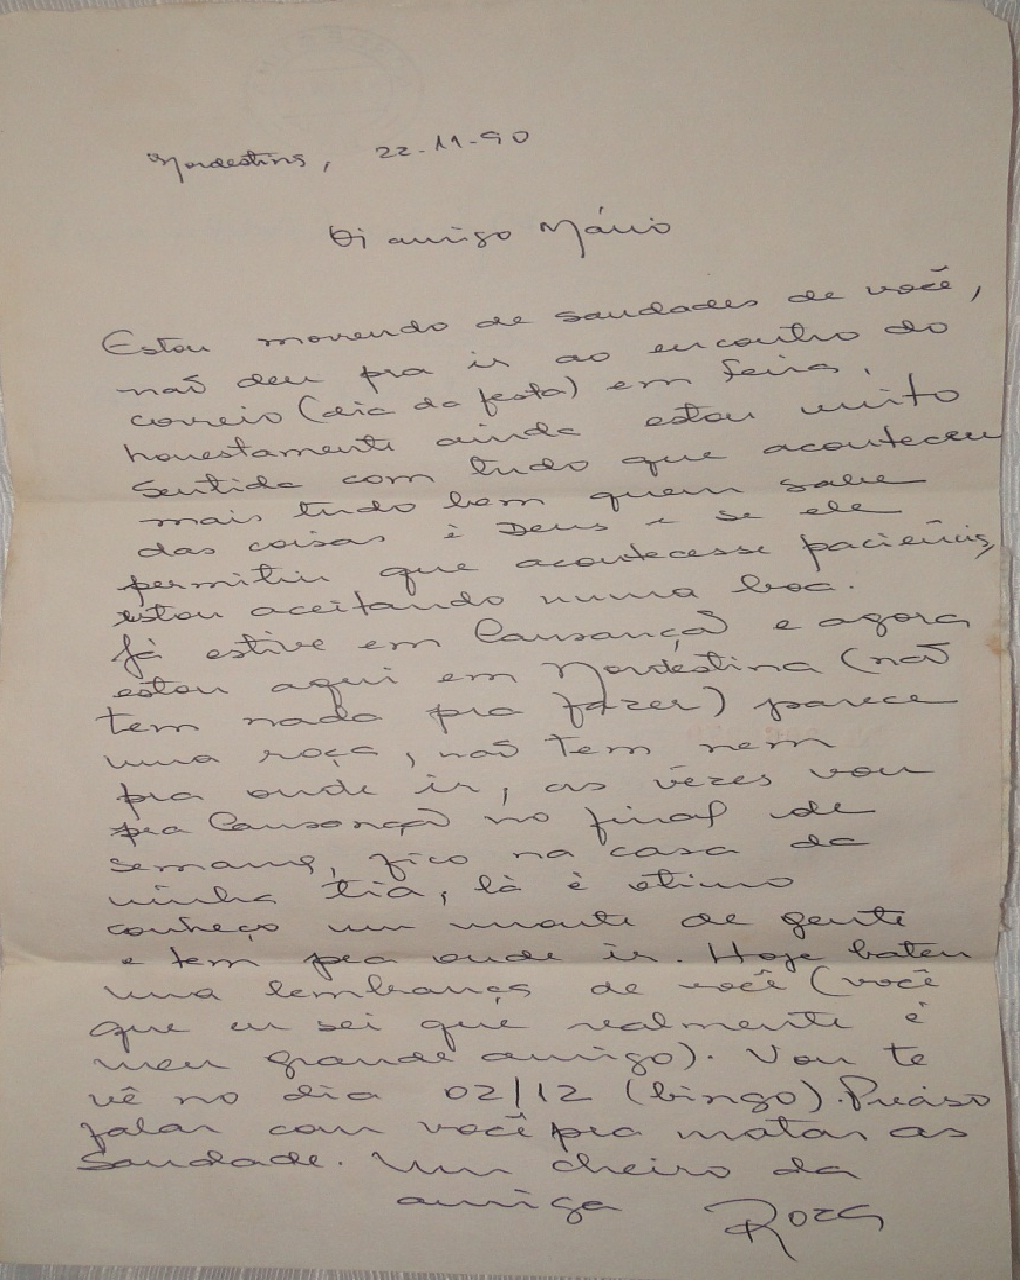 Nordestina, 22-11-90
Oi amigo Mário
Estou morrendo de saudades de você,
não deu pra ir ao encontro do
correio (dia da festa) em Feira,
honestamente ainda estou muito
sentida com tudo que aconteceu
mais tudo bem quem sabe
das coisas é Deus e se ele
permitiu que acontecesse paciência,
estou aceitando numa boa.
Já estive em Cansanção e agora
estou aqui em Nordestina (não
tem nada pra fazer) parece
uma roça, não tem nem
pra onde ir, as vêzes vou
pra Cansanção no final de
semana, fico na casa da
minha tia, lá é otimo
conheço um monte de gente
e tem pra onde ir. Hoje bateu
uma lembrança de você (você
que eu sei que realmente é
meu grande amigo). Vou te
vê no dia 02/12 (bingo). Preciso
falar com você pra matar as
saudade. Um cheiro da
amiga Roza